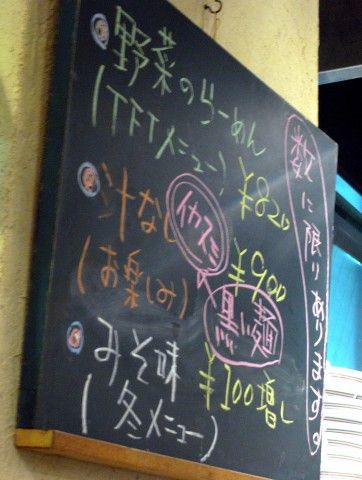 野菜のらーめん
(TFTメニュー) ¥820
汁なし
(お楽しみ) ¥900
イカスミ
黒い麺
みそ味
(冬メニュー) ¥100増し
数に限りあります。